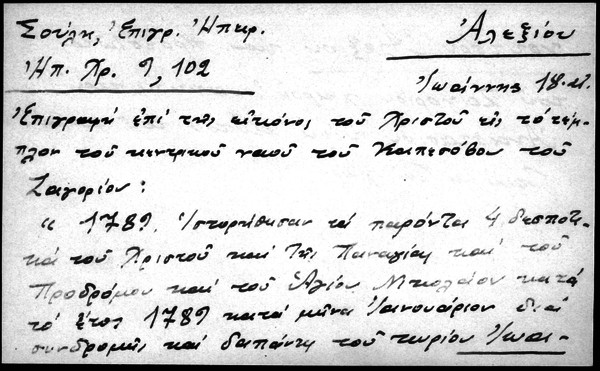 Σούλη, Ἐπιγρ. Ἠπειρ.
Ἀλεξίου
Ἠπ. Χρ. 9, 102
Ἰωάννης 18. αι.
Ἐπιγραφή ἐπί τῆς εἰκόνος τοῦ Χριστοῦ εἰς τό τέμ-
πλον τοῦ κεντρικοῦ ναοῦ τοῦ Καπεσόβου τοῦ
Ζαγορίου:
" 1789. Ἱστορήθησαν τά παρόντα 4 δεσποτι-
κά τοῦ Χριστοῦ καί τῆς Παναγίας καί τοῦ
Προδρόμου καί τοῦ Ἁγίου Νικολαίου κατά
τό ἔτος 1789 κατά μῆνα Ἰαννουάριον διά
συνδρομῆς καί δαπάνη τοῦ τιμίου Ἰωά-